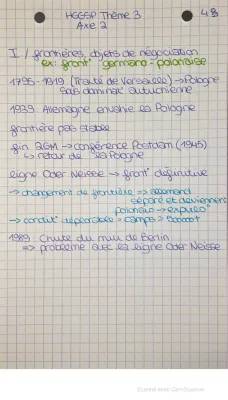 HGGSP Thème 3
Axe 2
I / frontières, objets de négociation
ex: front° germano-polonaise
1795-1919 (Traité de Versaille) → Pologne
sous dominat° autrichienne
1939 Allemagne envahie la Pologne
frontière pas stable
fin 2GM → conférence Postdam (1945)
↳ retour de la Pologne
ligne Oder Neisse → front° définitive
→ changement de frontière => allemand
séparé et deviennent
polonais → expulsé
→ conduit° déplorable = camps =
1989 Chute du mur de Berlin
=> problème avec la ligne Oder Neisse